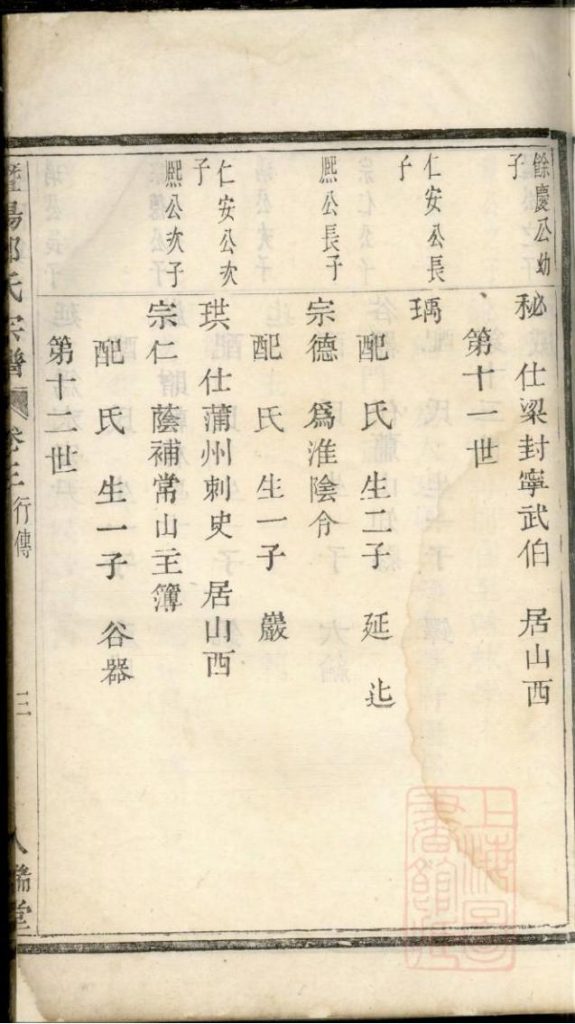 餘慶公幼子
秘 仕梁封寧武伯 居山西
第十一世
仁安公長子
瑀
配 氏 生二子 延 辿
熙公長子
宗德 爲淮陰令
配 氏 生一子 巖
仁安公次子
珙 仕蒲州刺史 居山西
熙公次子
宗仁 蔭補常山主簿
配 氏 生一子 谷器
第十二世
暨陽 氏宗譜 卷三 行傳 三 人瑞堂
上海圖書館藏